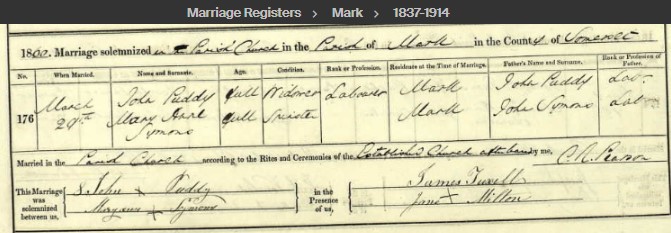 Marriage Registers > Mark > 1837-1914
1860. Marriage solemnized in the Parish Church in the Parish of Mark in the County of Somerset
No. When Married. Name and Surname. Age. Condition. Rank or Profession. Residence at the Time of Marriage. Father's Name and Surname. Rank or Profession of Father.
176 March John Puddy full Widower Labourer Mark John Puddy Lab.
Mary Anne Symons full Spinster Mark John Symons
Married in the Parish Church according to the Rites and Ceremonies of the Established Church by me, Pearson
This Marriage was solemnized between us, John x Puddy in the Presence of us, James
Mary ann x Symons Jane x Millon